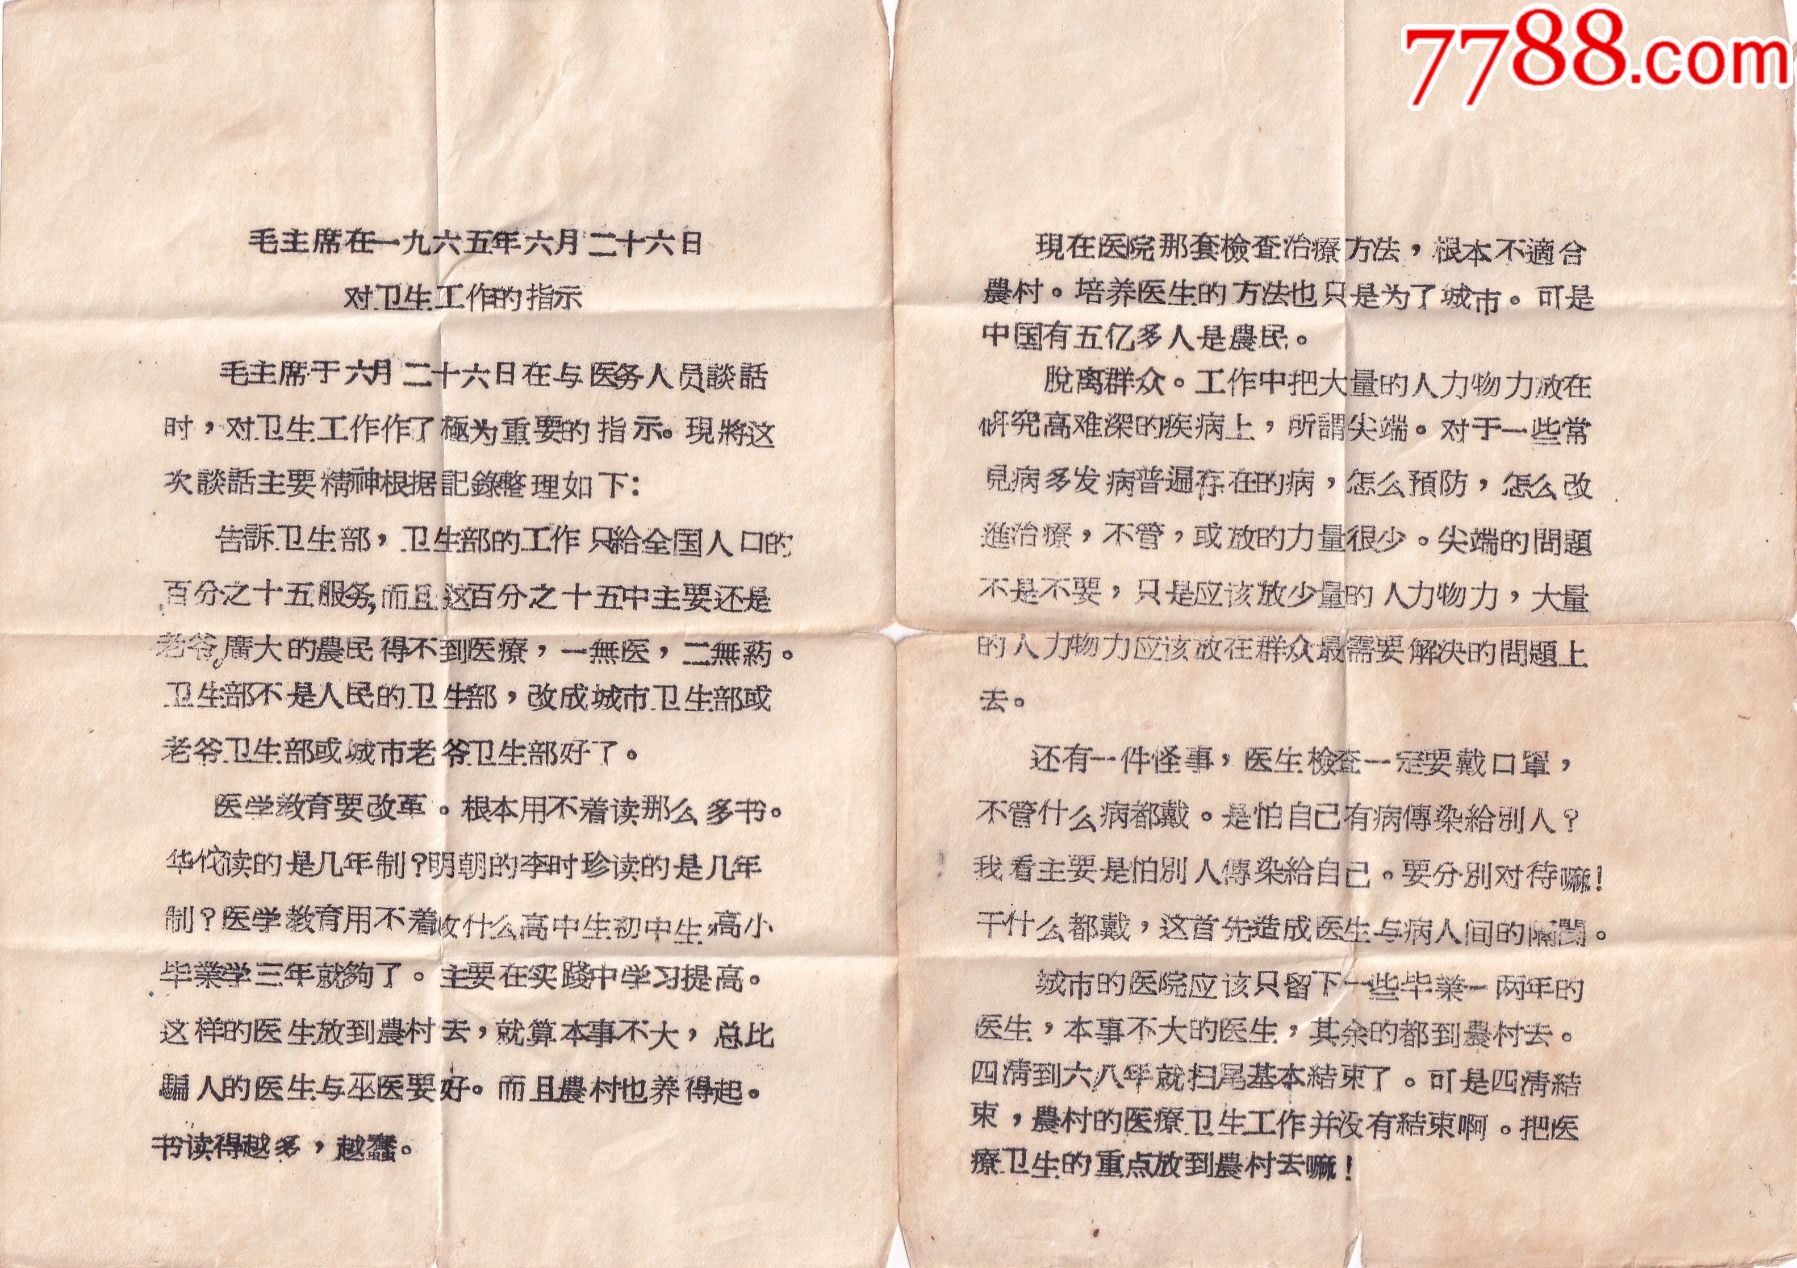 7788.com
毛主席在一九六五年六月二十六日
对卫生工作的指示
毛主席于六月二十六日在与医务人员談話
时，对卫生工作作了極为重要的指示。現將这
次談話主要精神根据記錄整理如下：
告訴卫生部，卫生部的工作只給全国人口的
百分之十五服务，而且这百分之十五中主要还是
老爷，廣大的農民得不到医療，一無医，二無葯。
卫生部不是人民的卫生部，改成城市卫生部或
老爷卫生部或城市老爷卫生部好了。
医学教育要改革。根本用不着读那么多书。
华佗读的是几年制？明朝的李时珍读的是几年
制？医学教育用不着收什么高中生初中生，高小
毕業学三年就夠了。主要在实踐中学习提高。
这样的医生放到農村去，就算本事不大，总比
騙人的医生与巫医要好。而且農村也养得起。
书读得越多，越蠢。
現在医院那套檢查治療方法，根本不適合
農村。培养医生的方法也只是为了城市。可是
中国有五亿多人是農民。
脫离群众。工作中把大量的人力物力放在
研究高难深的疾病上，所謂尖端。对于一些常
見病多发病普遍存在的病，怎么預防，怎么改
進治療，不管，或放的力量很少。尖端的問題
不是不要，只是应该放少量的人力物力，大量
的人力物力应该放在群众最需要解决的問題上
去。
还有一件怪事，医生檢查一定要戴口罩，
不管什么病都戴。是怕自己有病傳染給別人？
我看主要是怕別人傳染給自己。要分別对待嘛！
干什么都戴，这首先造成医生与病人间的隔閡。
城市的医院应该只留下一些毕業一两年的
医生，本事不大的医生，其余的都到農村去。
四清到六八年就扫尾基本結束了。可是四清結
束，農村的医療卫生工作并没有結束啊。把医
療卫生的重点放到農村去嘛！